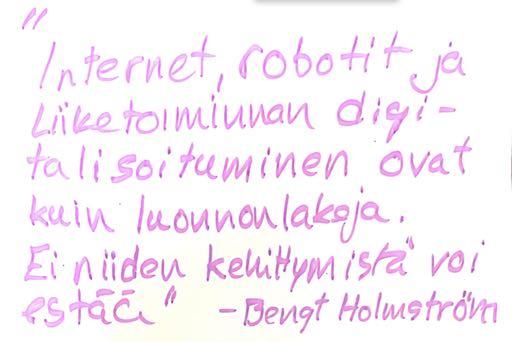 "
Internet, robotit ja
Liiketoiminnan digi-
talisoituminen ovat
kuin luonnonlakeja.
Ei niiden kehittymistä voi
estää" -Bengt Holmström